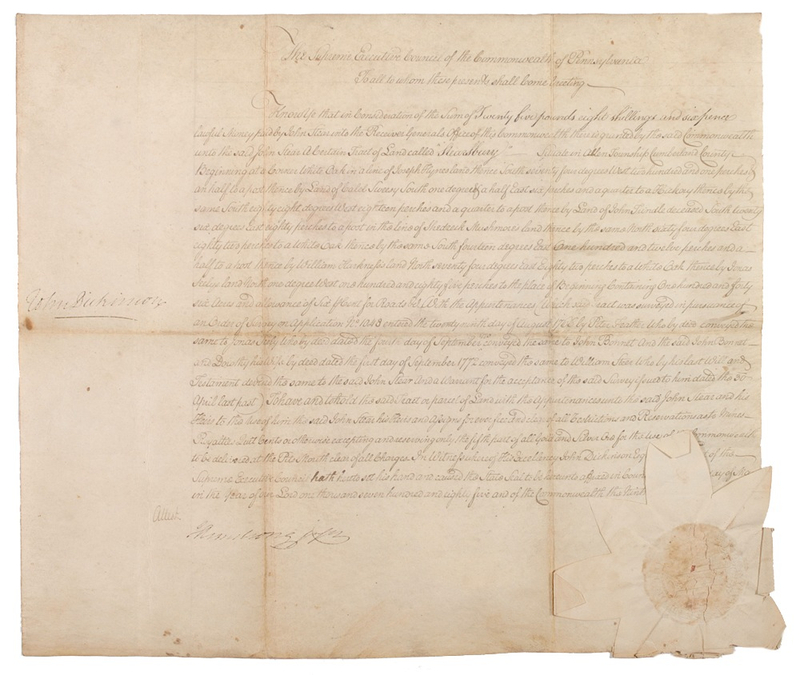 The Supreme Executive Council of the Commonwealth of Pennsylvania
To all to whom these presents shall Come Greeting
Know Ye that in Consideration of the Sum of Twenty five pounds eight Shillings and six pence
lawful Money paid by John Stear into the Receiver Generals Office of this Commonwealth there is granted by the said Commonwealth
unto the said John Stear A Certain Tract of Land called " " Situate in Allen Township Cumberland County
Beginning at a Corner White Oak in a line of Joseph land thence South seventy four degrees East two hundred and one perches
an half to a post thence by Land of South one degree & a half East six perches and a quarter to a Hickory thence by the
same South eighty eight degrees West eighteen perches and a quarter to a post thence by Land of John deceased South twenty
six degrees East eighty perches to a post in the line of Frederick land thence by the same North sixty four degrees East
eighty two perches to a White Oak thence by the same South fourteen degrees East One hundred and twelve perches and a
half to a post thence by William Harkness land North seventy four degrees East Eighty two perches to a White Oak thence by Jonas
land North one degree West one hundred and eighty five perches to the place of Beginning Containing One hundred and forty
six Acres and allowance of Six P Cent for Roads &c With the Appurtenances (Which said tract was surveyed in pursuance of
an Order of Survey on Application No. 1043 entered the twenty ninth day of August by Peter Who by deed conveyed the
same to Jonas Who by deed dated the day of September conveyed the same to John Bonnet And the said John Bonnet
and Dorothy his Wife by deed dated the first day of September 1772 conveyed the same to William Stear Who by his last Will and
Testament devised the same to the said John Stear And a Warrant for the acceptance of the said Survey issued to him dated the
April last past) To have and to hold the said Tract or parcel of Land with the Appurtenances unto the said John Stear and his
Heirs to the Use of him the said John Stear his Heirs and Assigns for ever free and clear of all Restrictions and Reservations as to Mines
Royalties Quit Rents or otherwise excepting and reserving only the fifth part of all Gold and Silver Ore for the Use of this Commonwealth
to be delivered at the Pits Mouth clear of all Charges. In Witness whereof his Excellency John Dickinson Esq of the
Supreme Executive Council hath hereto set his hand and caused the State Seal to be hereunto affixed in Council day of
in the Year of our Lord one thousand seven hundred and eighty five and of the Commonwealth the Ninth
John Dickinson
Attest
J Armstrong Junr